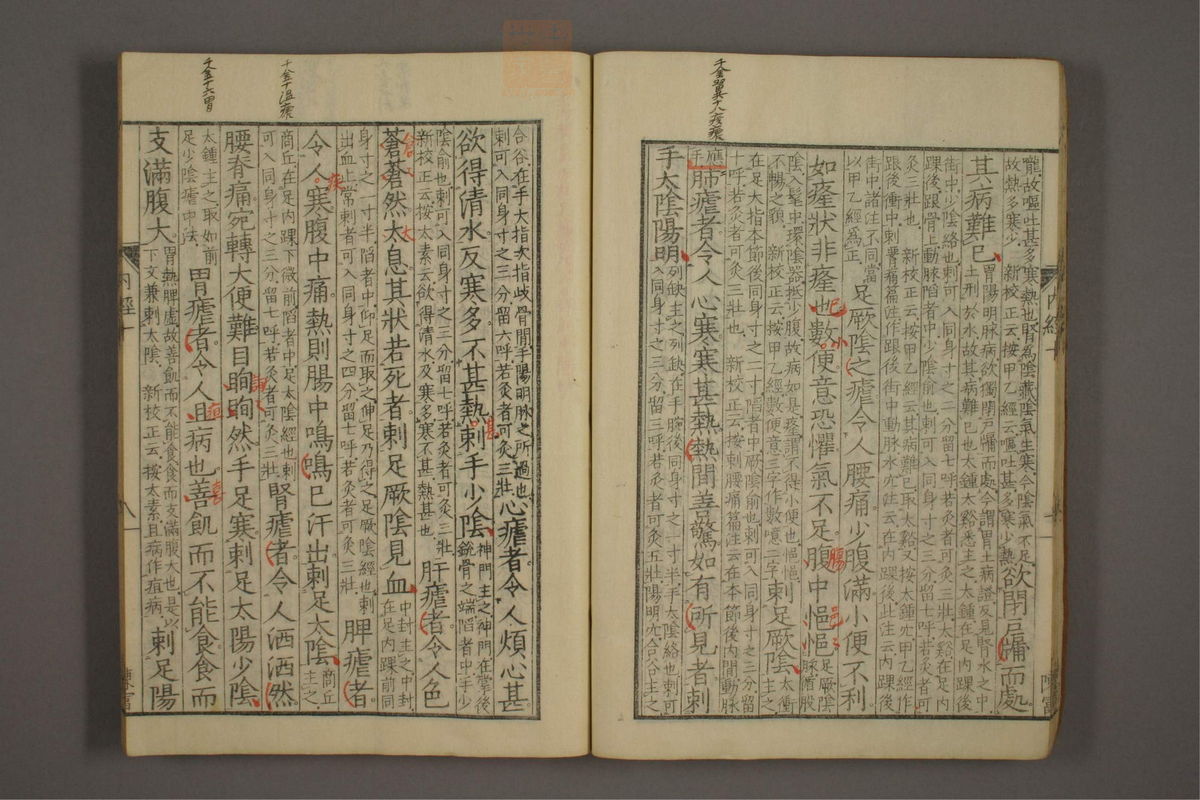 千金翼十八瘧瘧
寵故嘔吐甚多寒熱也腎為陰藏陰氣生寒今陰氣不足
故熱多寒少 新校正云按甲乙經云嘔吐甚多寒少熱
欲閉戶牖而處
其病難已
胃陽明脉病欲獨閉戶牖而處今謂胃土病證反見腎水之中
土刑於水故其病難已也太鍾太谿悉主之太鍾在足內踝後
街中少陰絡也刺可入同身寸之二分留七呼若灸者可灸三壯太谿在足內
踝後跟骨上動脉陷者中少陰俞也刺可入同身寸之三分留七呼若灸者可
灸三壯也 新校正云按甲乙經云其病難已取太谿又按太鍾穴甲乙經作
跟後衝中刺腰痛篇注作跟後街中動脉水穴注云在內踝後此注云內踝後
街中諸注不同當
以甲乙經為正
足厥陰之瘧令人腰痛少腹滿小便不利
如癃狀非癃也數便意恐懼氣不足腹中悒悒
足厥陰
脉循股
陰入髦中環陰器抵少腹故病如是癃謂不得小便也悒悒
不暢之貌 新校正云按甲乙經數便意三字作數噫二字
刺足厥陰
太衝
主之
在足大指本節後同身寸之二寸陷者中厥陰俞也刺可入同身寸之三分留
十呼若灸者可灸三壯也 新校正云按刺腰痛篇注云在本節後內間動脉
應
手
肺瘧者令人心寒寒甚熱熱間善驚如有所見者刺
手太陰陽明
列缺主之列缺在手腕後同身寸之一寸半手太陰絡也刺可
入同身寸之三分留三呼若灸者可灸五壯陽明穴合谷主之
合谷在手大指次指歧骨間手陽明脉之所過也
刺可入同身寸之三分留六呼若灸者可灸三壯
心瘧者令人煩心甚
欲得清水反寒多不甚熱刺手少陰
神門主之神門在掌後
銳骨之端陷者中手少
陰俞也刺可入同身寸之三分留七呼若灸者可灸三壯
新校正云按太素云欲得清水及寒多寒不甚熱甚也
肝瘧者令人色
蒼蒼然太息其狀若死者刺足厥陰見血
中封主之中封
在足內踝前同
身寸之一寸半陷者中仰足而取之伸足乃得之足厥陰經也刺
出血止常刺者可入同身寸之四分留七呼若灸者可灸三壯
脾瘧者
令人寒腹中痛熱則腸中鳴鳴已汗出刺足太陰
商丘
主之
千金十溫瘧
商丘在足內踝下微前陷者中足太陰經也刺
可入同身寸之三分留七呼若灸者可灸三壯
腎瘧者令人洒洒然
腰脊痛宛轉大便難目眴眴然手足寒刺足太陽少陰
千金十六胃
太鍾主之取如前
足少陰瘧中法
胃瘧者令人且病也善飢而不能食食而
支滿腹大
胃熱脾虛故善飢而不能食食而支滿腹大也是以
下文兼刺太陰 新校正云按太素且病作疽病
刺足陽
內經十
八